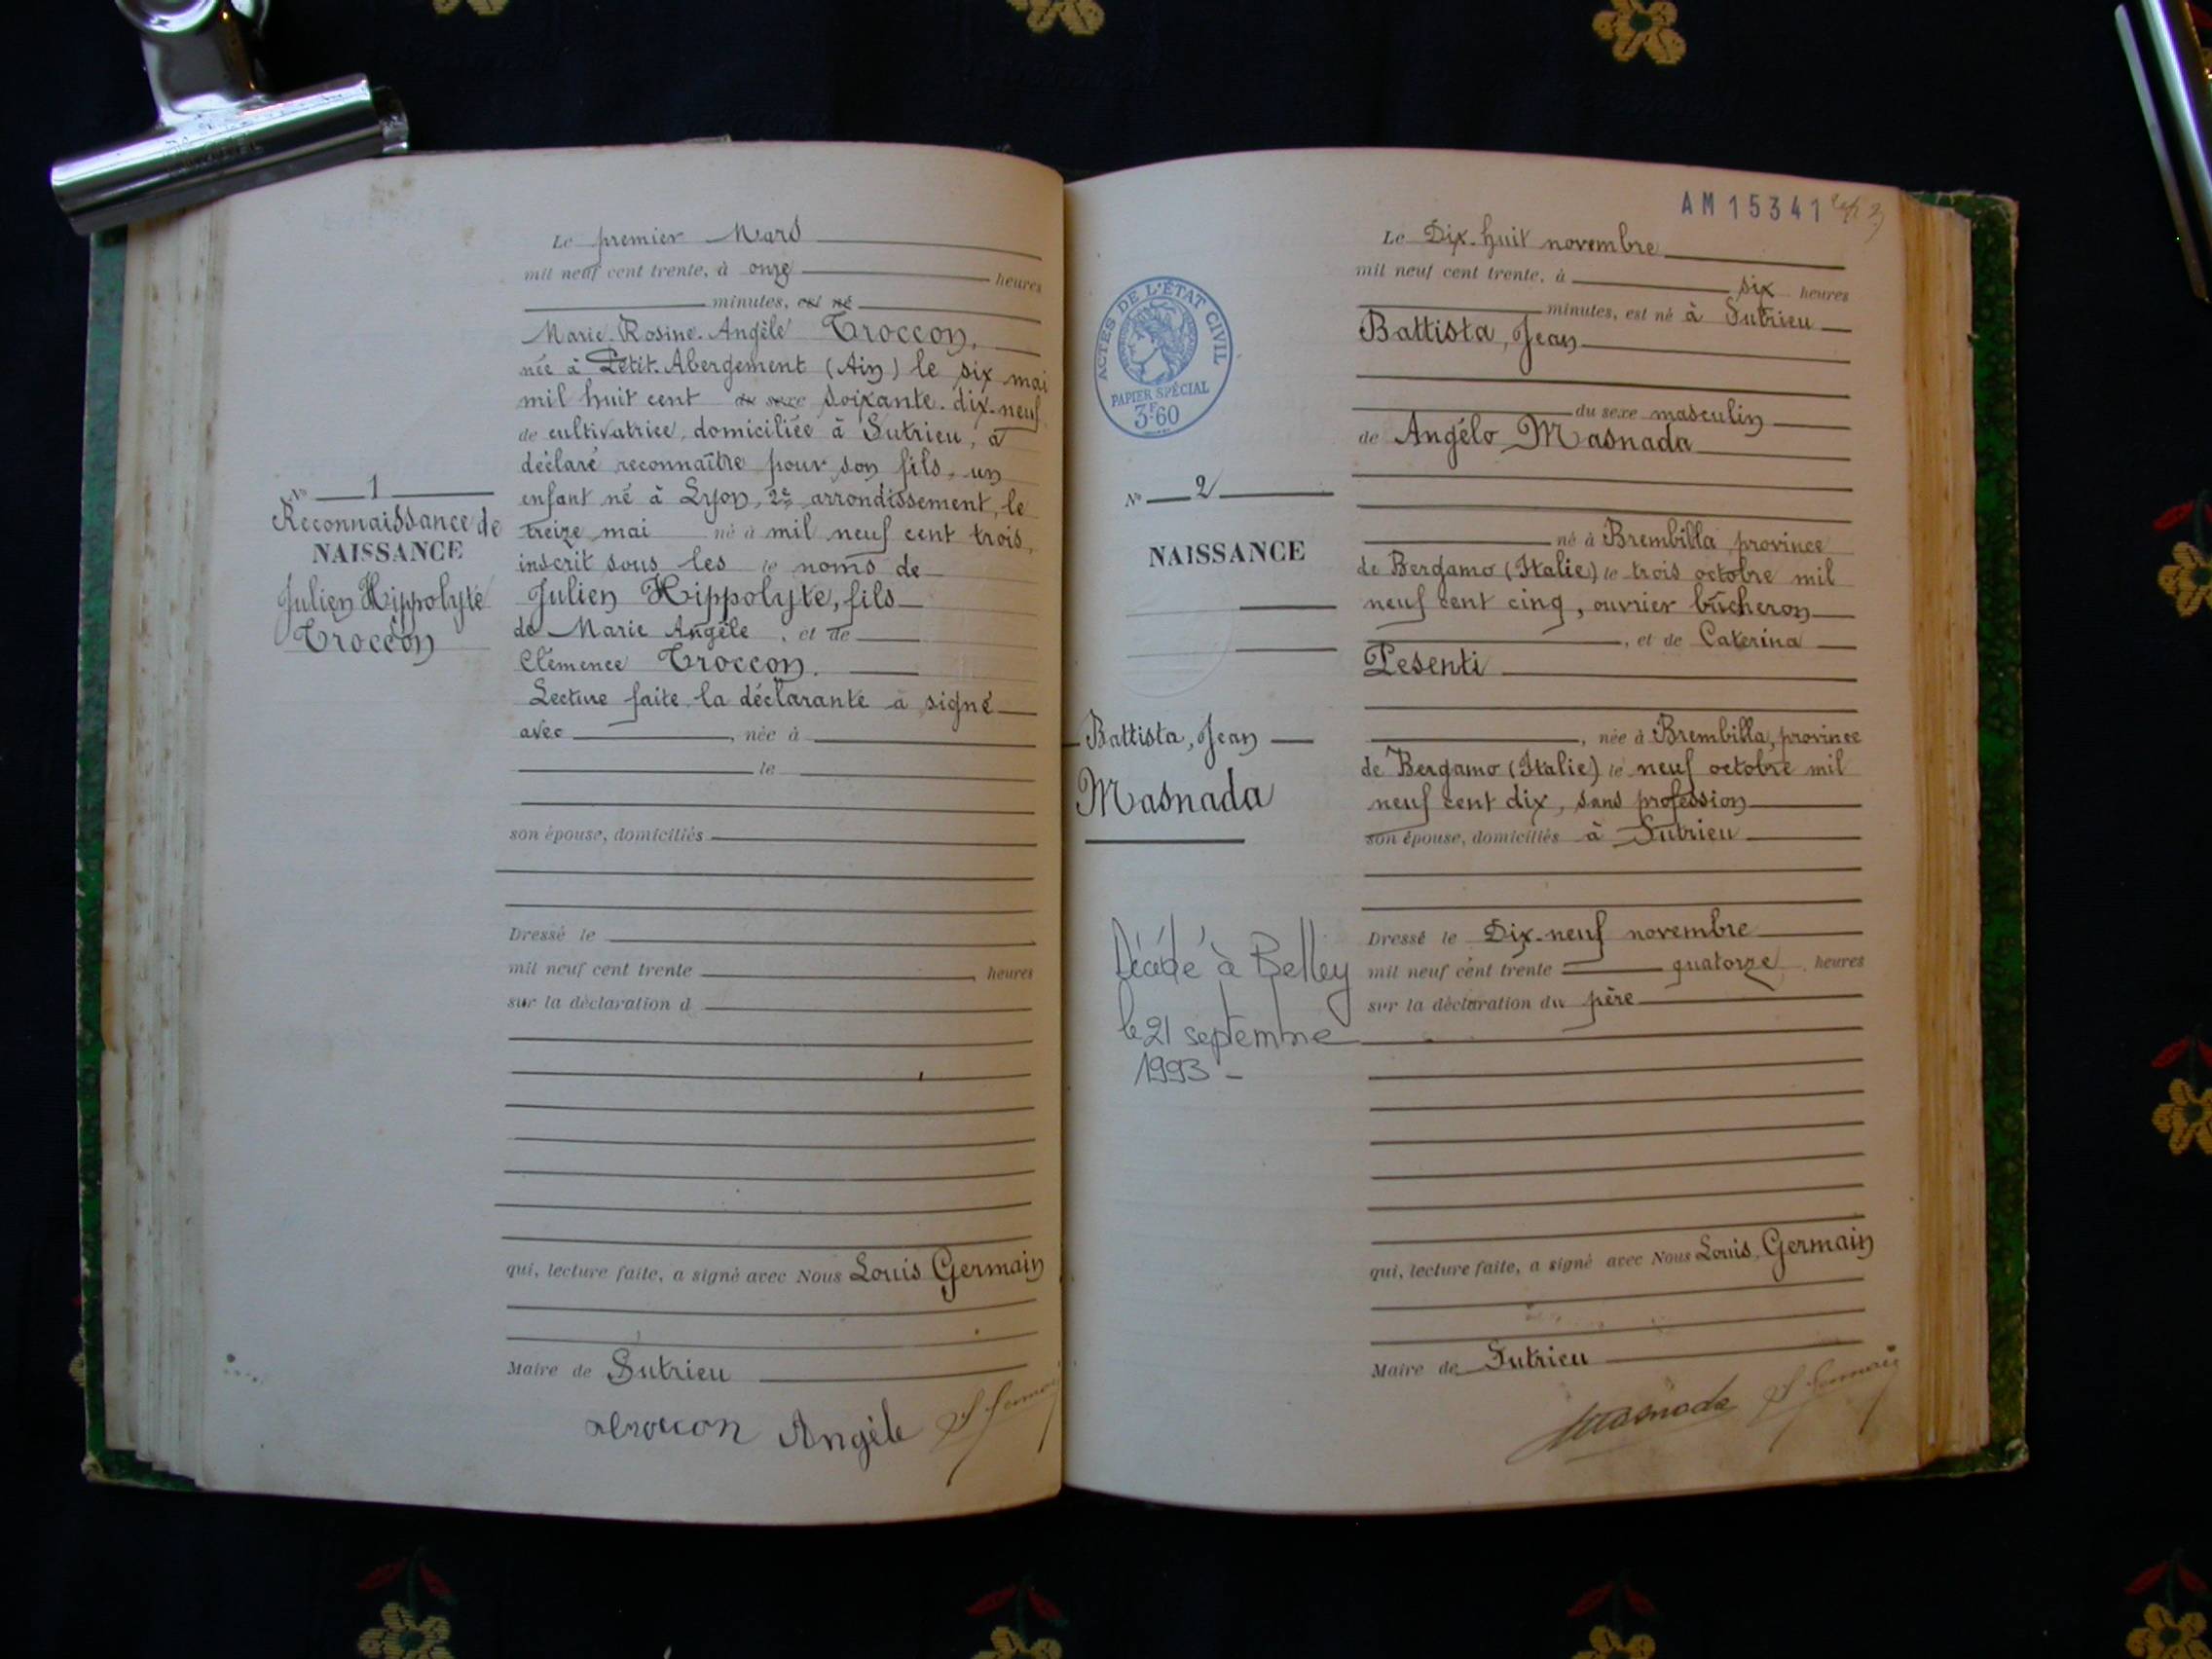 Le premier Mars
mil neuf cent trente, à onze heures
minutes, est né
Marie Rosine Angèle Troccon,
née à Petit-Abergement (Ain) le six mai
mil huit cent du sexe soixante-dix-neuf
de cultivatrice, domiciliée à Sutrieu, a
déclaré reconnaître pour son fils, un
enfant né à Lyon, 2e arrondissement, le
treize mai né à mil neuf cent trois,
inscrit sous les le noms de
Julien Hippolyte, fils
de Marie Angèle, et de
Clémence Troccon.
Lecture faite, la déclarante a signé
avec , née à
le
son épouse, domiciliés
Dressé le
mil neuf cent trente , heures
sur la déclaration d
qui, lecture faite, a signé avec Nous Louis Germain
Maire de Sutrieu
Troccon Angèle
No 1
Reconnaissance de
NAISSANCE
Julien Hippolyte
Troccon
AM 15341
ACTES DE L'ÉTAT CIVIL
PAPIER SPÉCIAL
3F60
No 2
NAISSANCE
Battista, Jean
Masnada
Décédé à Belley
le 21 septembre
1993 -
Le Dix-huit novembre
mil neuf cent trente, à six heures
minutes, est né à Sutrieu
Battista, Jean
du sexe masculin
de Angélo Masnada
né à Brembilla, province
de Bergamo (Italie) le trois octobre mil
neuf cent cinq, ouvrier bûcheron
, et de Caterina
Pesenti
, née à Brembilla, province
de Bergamo (Italie) le neuf octobre mil
neuf cent dix, sans profession
son épouse, domiciliés à Sutrieu
Dressé le Dix-neuf novembre
mil neuf cent trente quatorze heures
sur la déclaration du père
qui, lecture faite, a signé avec Nous Louis Germain
Maire de Sutrieu
Masnada